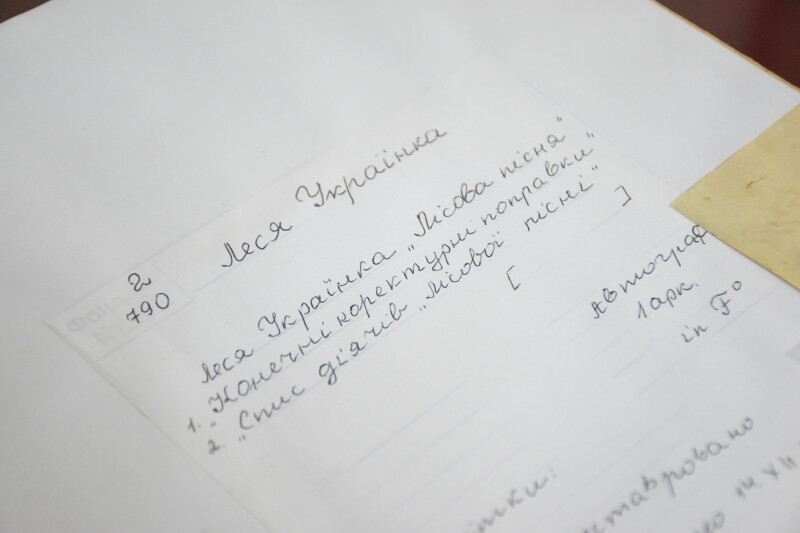 Фонд 2
№ 790
Леся Українка
Леся Українка „Лісова пісня“
1. „Конечні коректурні поправки“
2. „Спис діячів „Лісової пісні“
[ ]
Автограф
1 арк.
in F°
14. XII